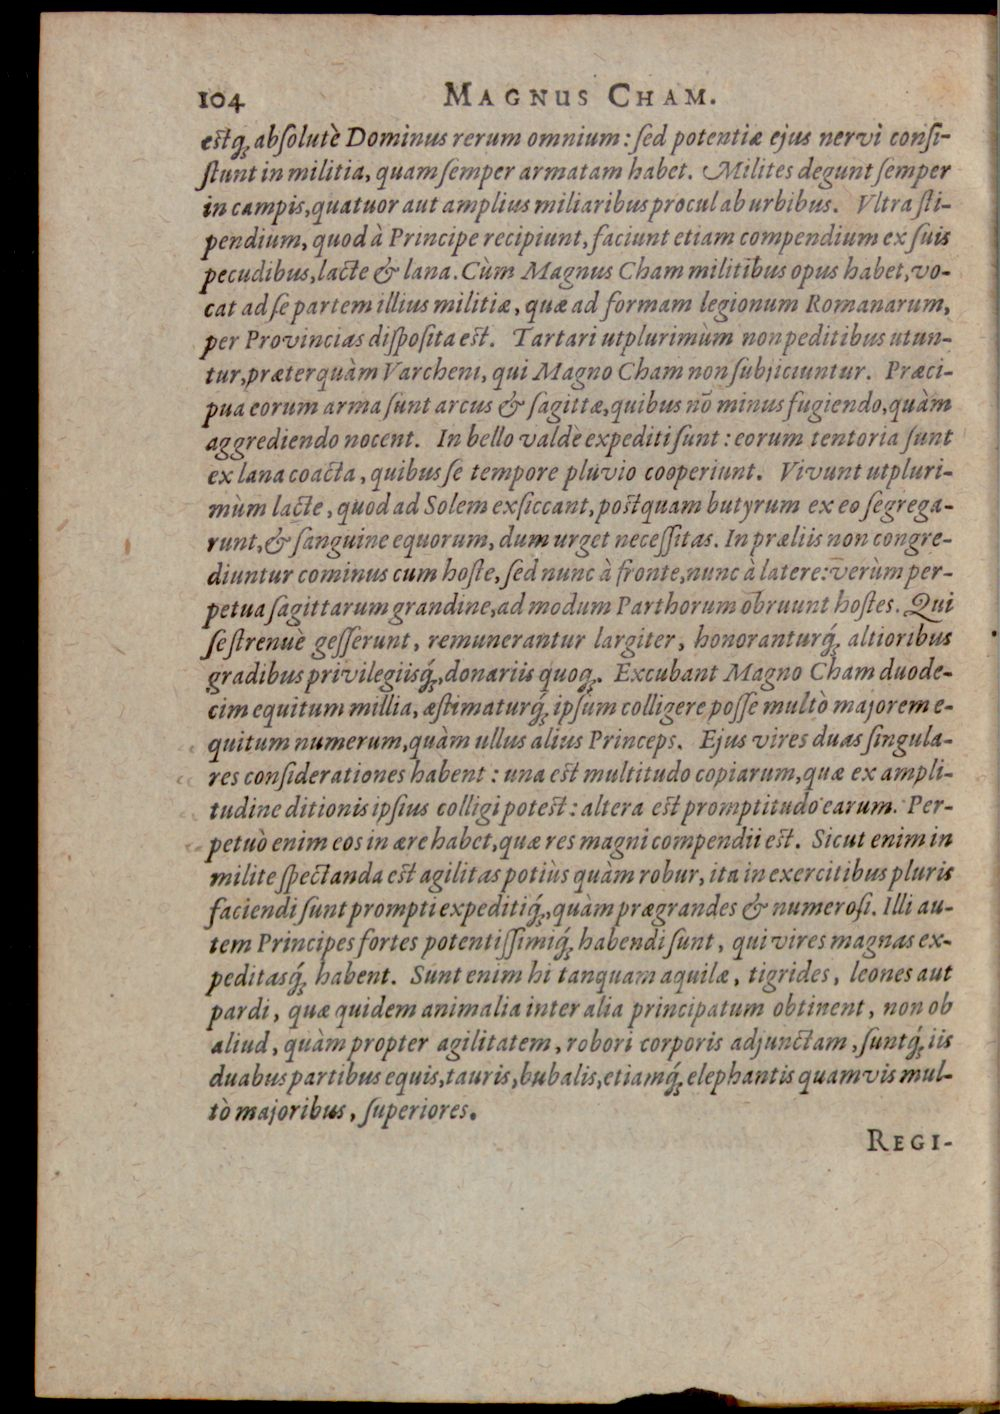 104 MAGNUS CHAM.
estq́; absolutè Dominus rerum omnium: sed potentiæ ejus nervi consi-
stunt in militia, quam semper armatam habet. Milites degunt semper
in campis, quatuor aut amplius miliaribus procul ab urbibus. Vltra sti-
pendium, quod à Principe recipiunt, faciunt etiam compendium ex suis
pecudibus, lacte & lana. Cùm Magnus Cham militibus opus habet, vo-
cat ad se partem illius militiæ, quæ ad formam legionum Romanarum,
per Provincias disposita est. Tartari utplurimùm non peditibus utun-
tur, præterquàm Varcheni, qui Magno Cham non subjiciuntur. Præci-
pua eorum arma sunt arcus & sagittæ, quibus nō minus fugiendo, quàm
aggrediendo nocent. In bello valdè expediti sunt: eorum tentoria sunt
ex lana coacta, quibus se tempore pluvio cooperiunt. Vivunt utpluri-
mùm lacte, quod ad Solem exsiccant, postquam butyrum ex eo segrega-
runt, & sanguine equorum, dum urget necessitas. In præliis non congre-
diuntur cominus cum hoste, sed nunc à fronte, nunc à latere: verùm per-
petua sagittarum grandine, ad modum Parthorum obruunt hostes. Qui
se strenuè gesserunt, remunerantur largiter, honoranturq́; altioribus
gradibus privilegiisq́;, donariis quoq;. Excubant Magno Cham duode-
cim equitum millia, æstimaturq́; ipsum colligere posse multò majorem e-
quitum numerum, quàm ullus alius Princeps. Ejus vires duas singula-
res considerationes habent: una est multitudo copiarum, quæ ex ampli-
tudine ditionis ipsius colligi potest: altera est promptitudo earum. Per-
petuò enim eos in ære habet, quæ res magni compendii est. Sicut enim in
milite spectanda est agilitas potiùs quàm robur, ita in exercitibus pluris
faciendi sunt prompti expeditiq́;, quàm prægrandes & numerosi. Illi au-
tem Principes fortes potentissimiq́; habendi sunt, qui vires magnas ex-
peditasq́; habent. Sunt enim hi tanquam aquilæ, tigrides, leones aut
pardi, quæ quidem animalia inter alia principatum obtinent, non ob
aliud, quàm propter agilitatem, robori corporis adjunctam, suntq́; iis
duabus partibus equis, tauris, bubalis, etiamq́; elephantis quamvis mul-
tò majoribus, superiores.
REGI-